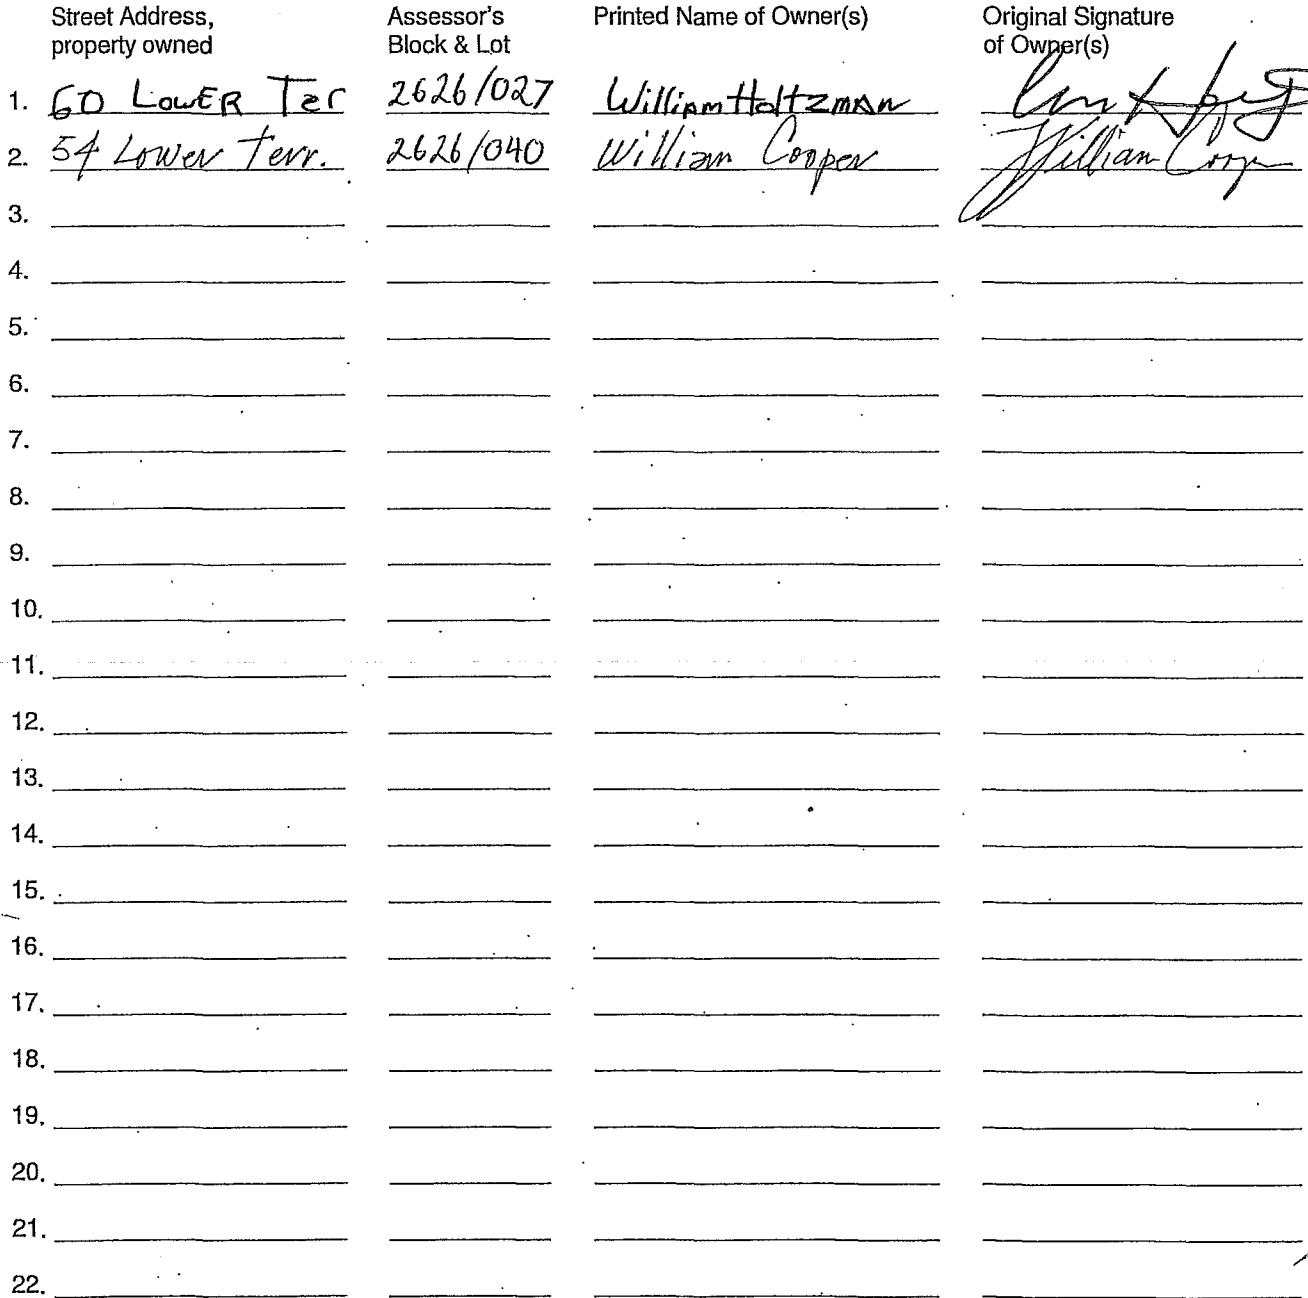 Street Address, property owned Assessor's Block & Lot Printed Name of Owner(s) Original Signature of Owner(s)
1. 60 LowER Ter 2626/027 William Holtzman
2. 54 Lower Terr. 2626/040 William Cooper William Cooper
3.
4.
5.
6.
7.
8.
9.
10.
11.
12.
13.
14.
15.
16.
17.
18.
19.
20.
21.
22.